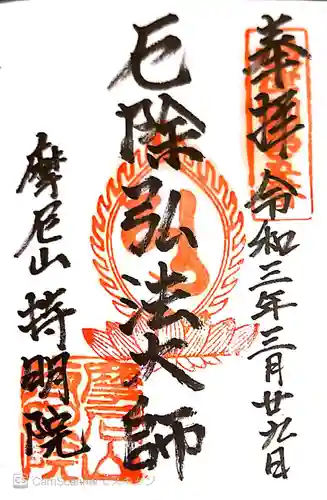 奉拝
令和三年三月廿九日
厄除弘法大師
摩尼山
持明院
CamScannerでスキャン